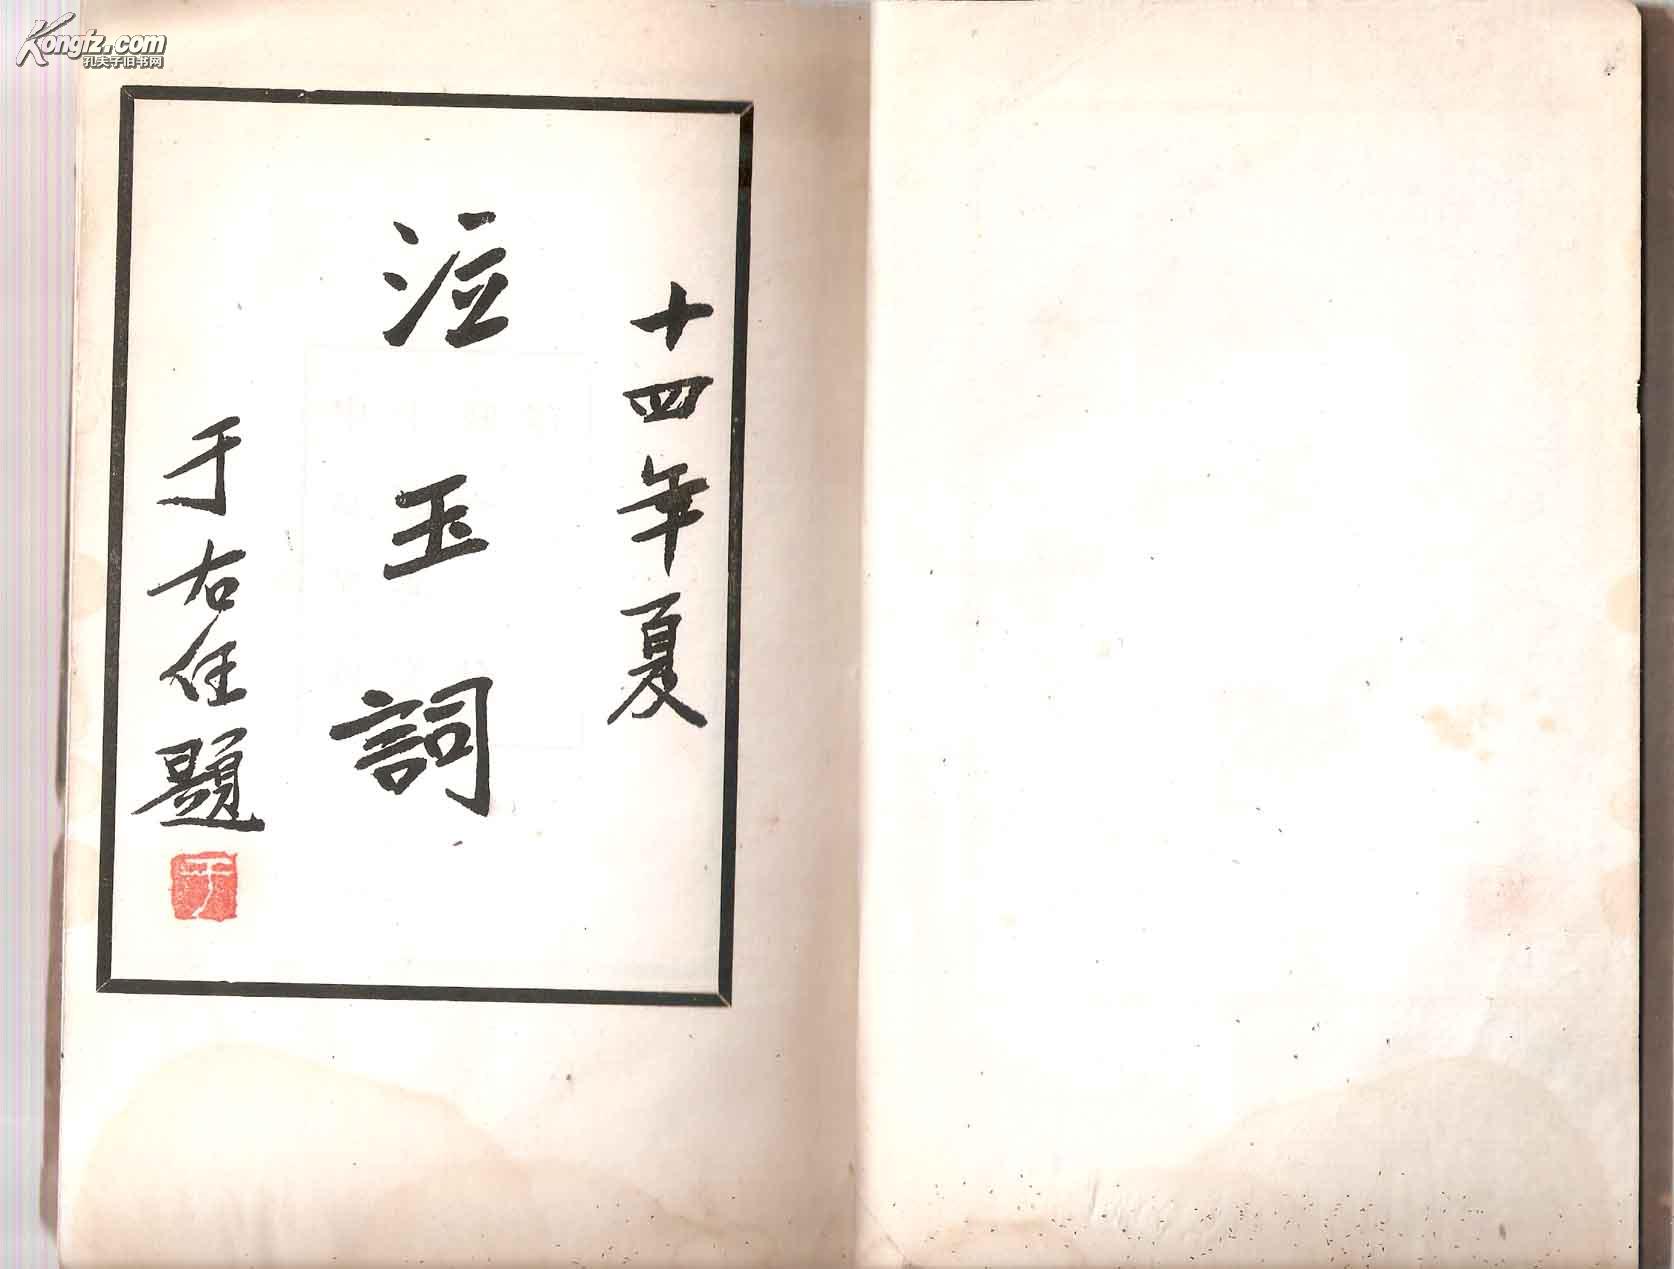 十四年夏
泣玉詞
于右任題
于
Kongfz.com
孔夫子旧书网